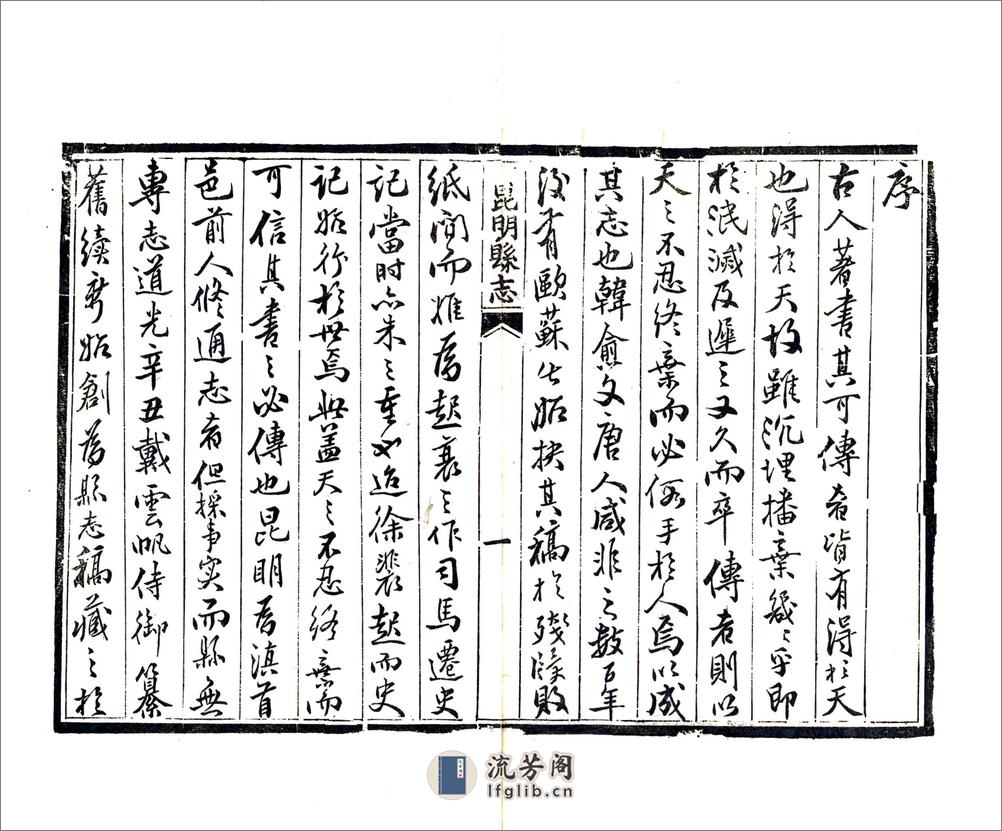 序
古人著書其可傳者皆有得於天
也得於天故雖沉埋播棄幾〻乎即
於泯滅及遲之又久而卒傳者則以
天之不忍終棄而必假手於人焉以成
其志也韓愈文唐人咸非之數百年
後有歐蘇出始抉其稿於殘牘敗
昆明縣志
一
紙間而推為起衰之作司馬遷史
記當時亦未之重也迨徐裴起而史
記始行於世焉此蓋天之不忍終棄而
可信其書之必傳也昆明為滇首
邑前人修通志者但採事实而縣無
專志道光辛丑戴雲帆侍御纂
舊續新始創為縣志稿藏之於
流芳阁
lfglib.cn